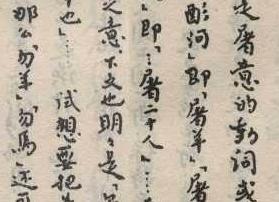 是屠意的動詞或
酚词」即「屠羊」「屠
」即「…屠二十人」…
之意下文也明々是「
牛也」…試想要把
那么「勿羊」「勿馬」还